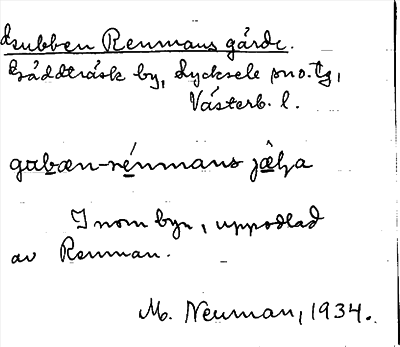 Renmans gärde.
Gäddträsk by, Lycksele sn o. tg,
Västerb. l.
gubæn-rénmans jæḷʒa
Inom byn, uppodlad
av Renman.
M. Neuman, 1934.